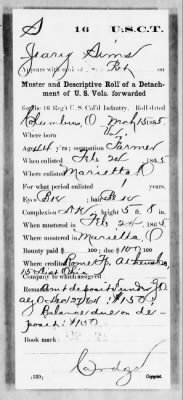 S 16 U.S.C.T.
Jeary Sims
Appears with rank of Pvt on
Muster and Descriptive Roll of a Detach-
ment of U. S. Vols. forwarded
for the 16 Reg't U. S. Col'd Infantry. Roll dated
Columbus, O. Mch 15 1865.
Where born Va.
Age 44 y'rs; occupation Farmer
When enlisted Feb 24, 1865.
Where enlisted Marietta O
For what period enlisted years.
Eyes Blk; hair Blk
Complexion Dk; height 5 ft. 8 in.
When mustered in Feb 24, 1865.
Where mustered in Marietta, O
Bounty paid $ 100; due $ 100
Where credited Rome Tp Athens Co,
15 Dist Ohio
Company to which assigned
Remarks: Amt deposit under G.O.
$150.
Balance due on de-
posit: $150.
Book mark:
(339) Copyist.